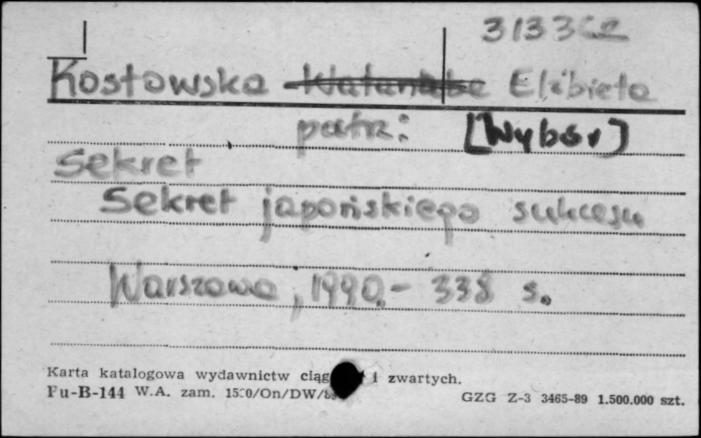 313362
Kostowska Watanabe Elżbieta
patrz: [Wybór]
Sekret
Sekret japońskiego sukcesu
Warszawa, 1990.- 338 s.
Karta katalogowa wydawnictw i zwartych.
Fu-B-144 W.A. zam.
GZG Z-3 3465-89 1.500.000 szt.